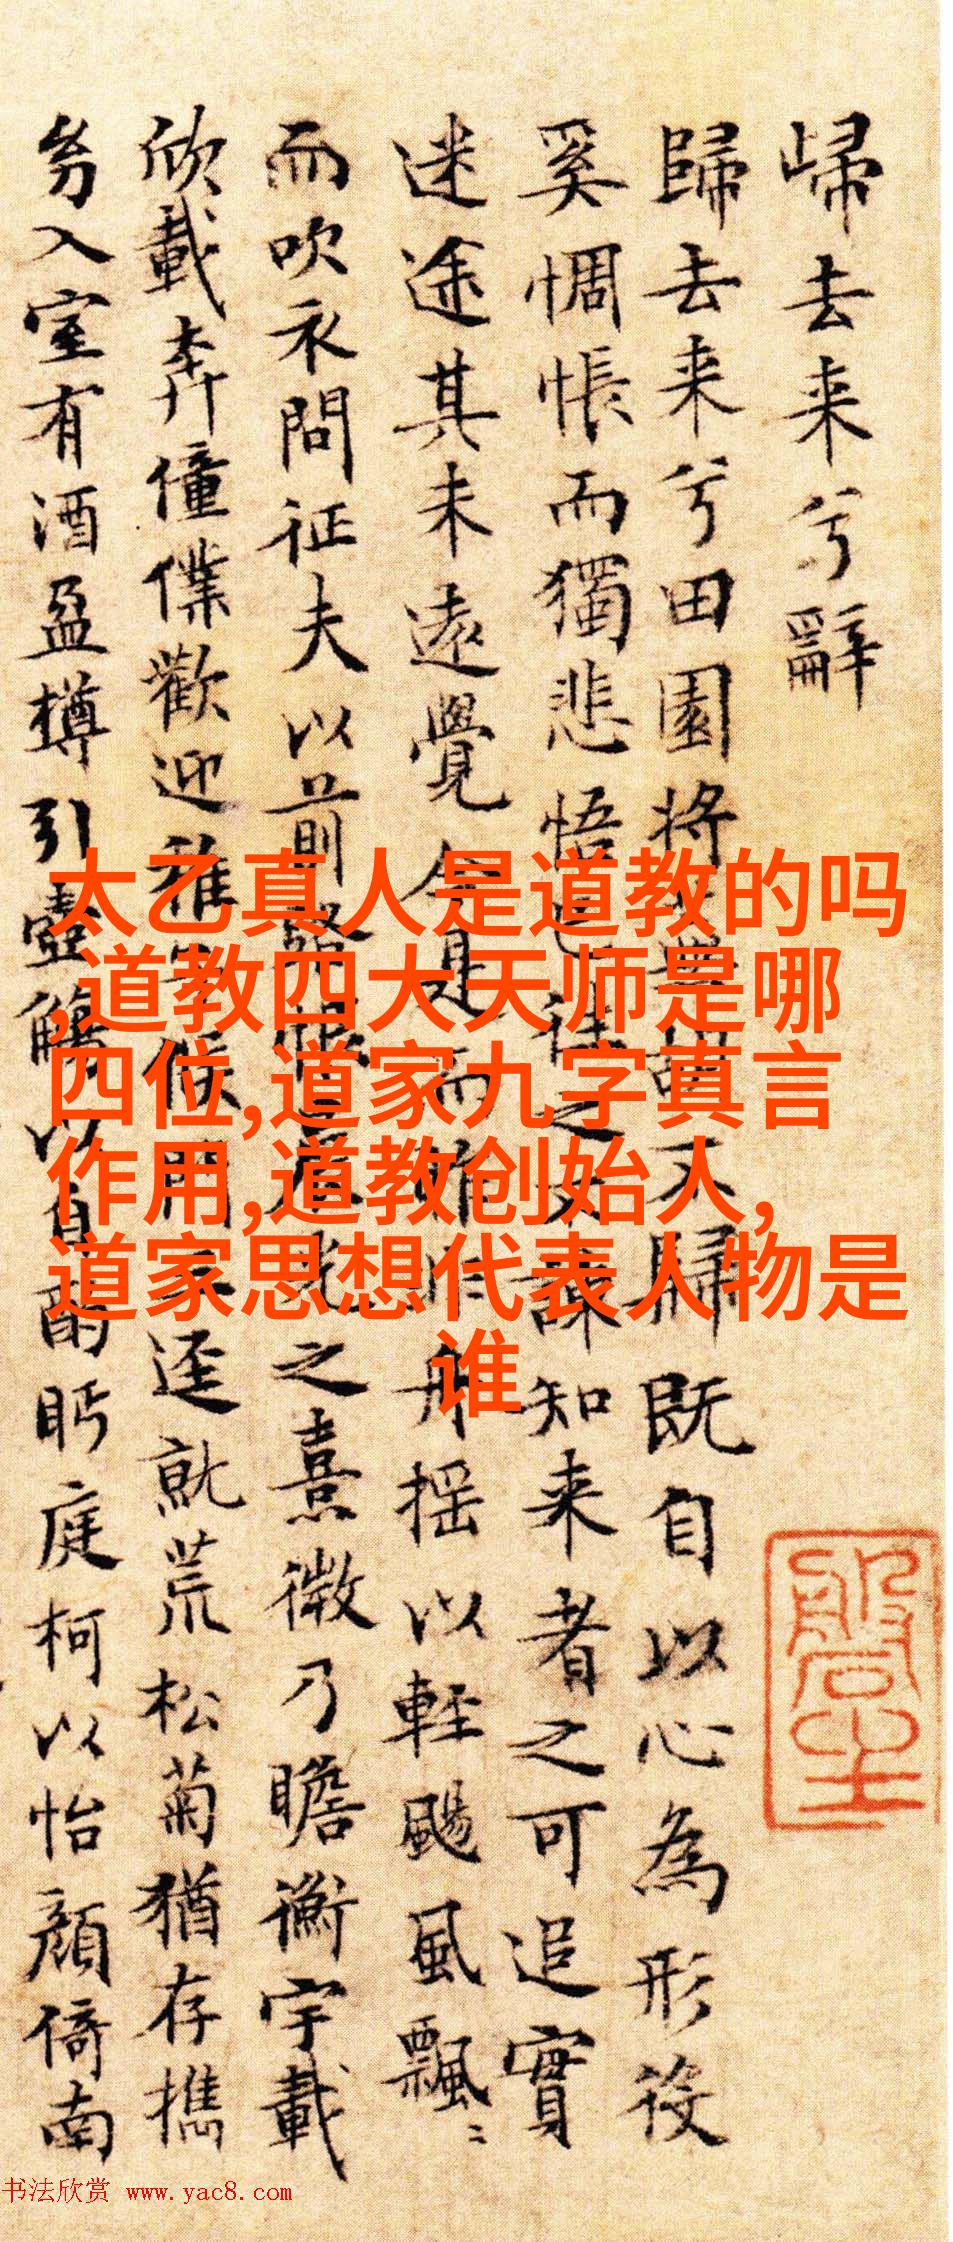 歸去来兮辭
歸去来兮田園将蕪胡不歸既自以心為形役
奚惆悵而獨悲悟已往之不諫知来者之可追實
迷途其未遠覺今是而昨非舟揺以輕颺風飄〻
而吹衣問征夫以前路恨晨光之熹微乃瞻衡宇載
欣載奔僮僕歡迎稚子候門三逕就荒松菊猶存携
㓜入室有酒盈樽引壺觴以自酌眄庭柯以怡顏倚南
太乙真人是道教的吗
,道教四大天师是哪
四位,道家九字真言
作用,道教创始人,
道家思想代表人物是
谁
书法欣赏 www.yac8.com